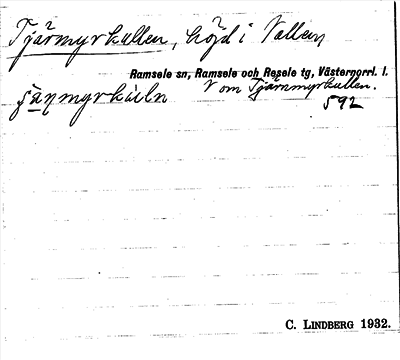 Tjärmyrkullen, höjd i Vallen
Ramsele sn, Ramsele och Resele tg, Västernorrl. l.
V om Tjärnmyrkullen.
592
C. LINDBERG 1932.